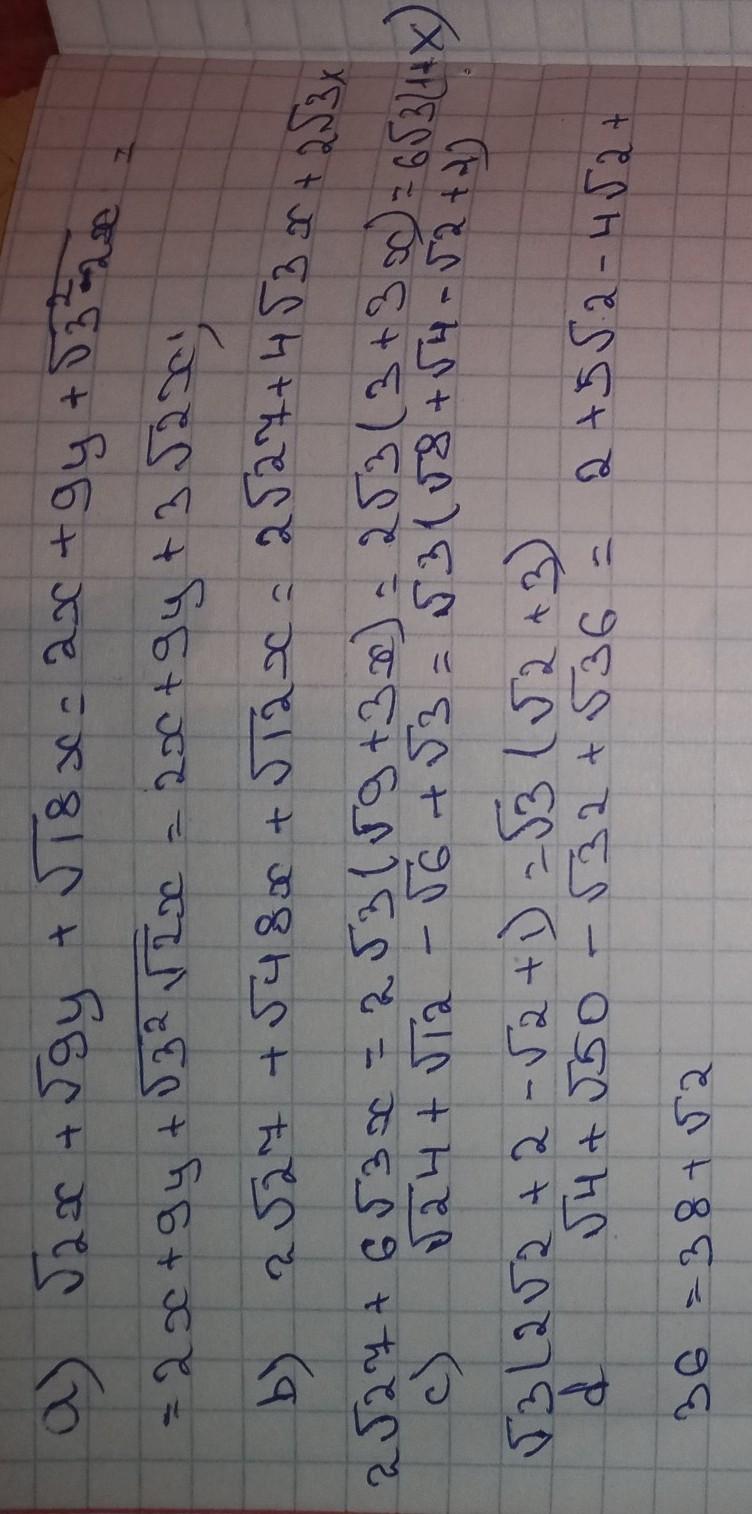 a) √2x + √9y + √18x = 2x + 9y + √3²·2x =
= 2x + 9y + √3² √2x = 2x + 9y + 3√2x;
b) 2√27 + √48x + √12x = 2√27 + 4√3x + 2√3x
2√27 + 6√3x = 2√3(√9 + 3x) = 2√3(3 + 3x) = 6√3(1+x)
c) √24 + √12 - √6 + √3 = √3(√8 + √4 - √2 + 1)
√3(2√2 + 2 - √2 + 1) = √3(√2 + 3)
d √4 + √50 - √32 + √36 = 2 + 5√2 - 4√2 +
36 = 38 + √2